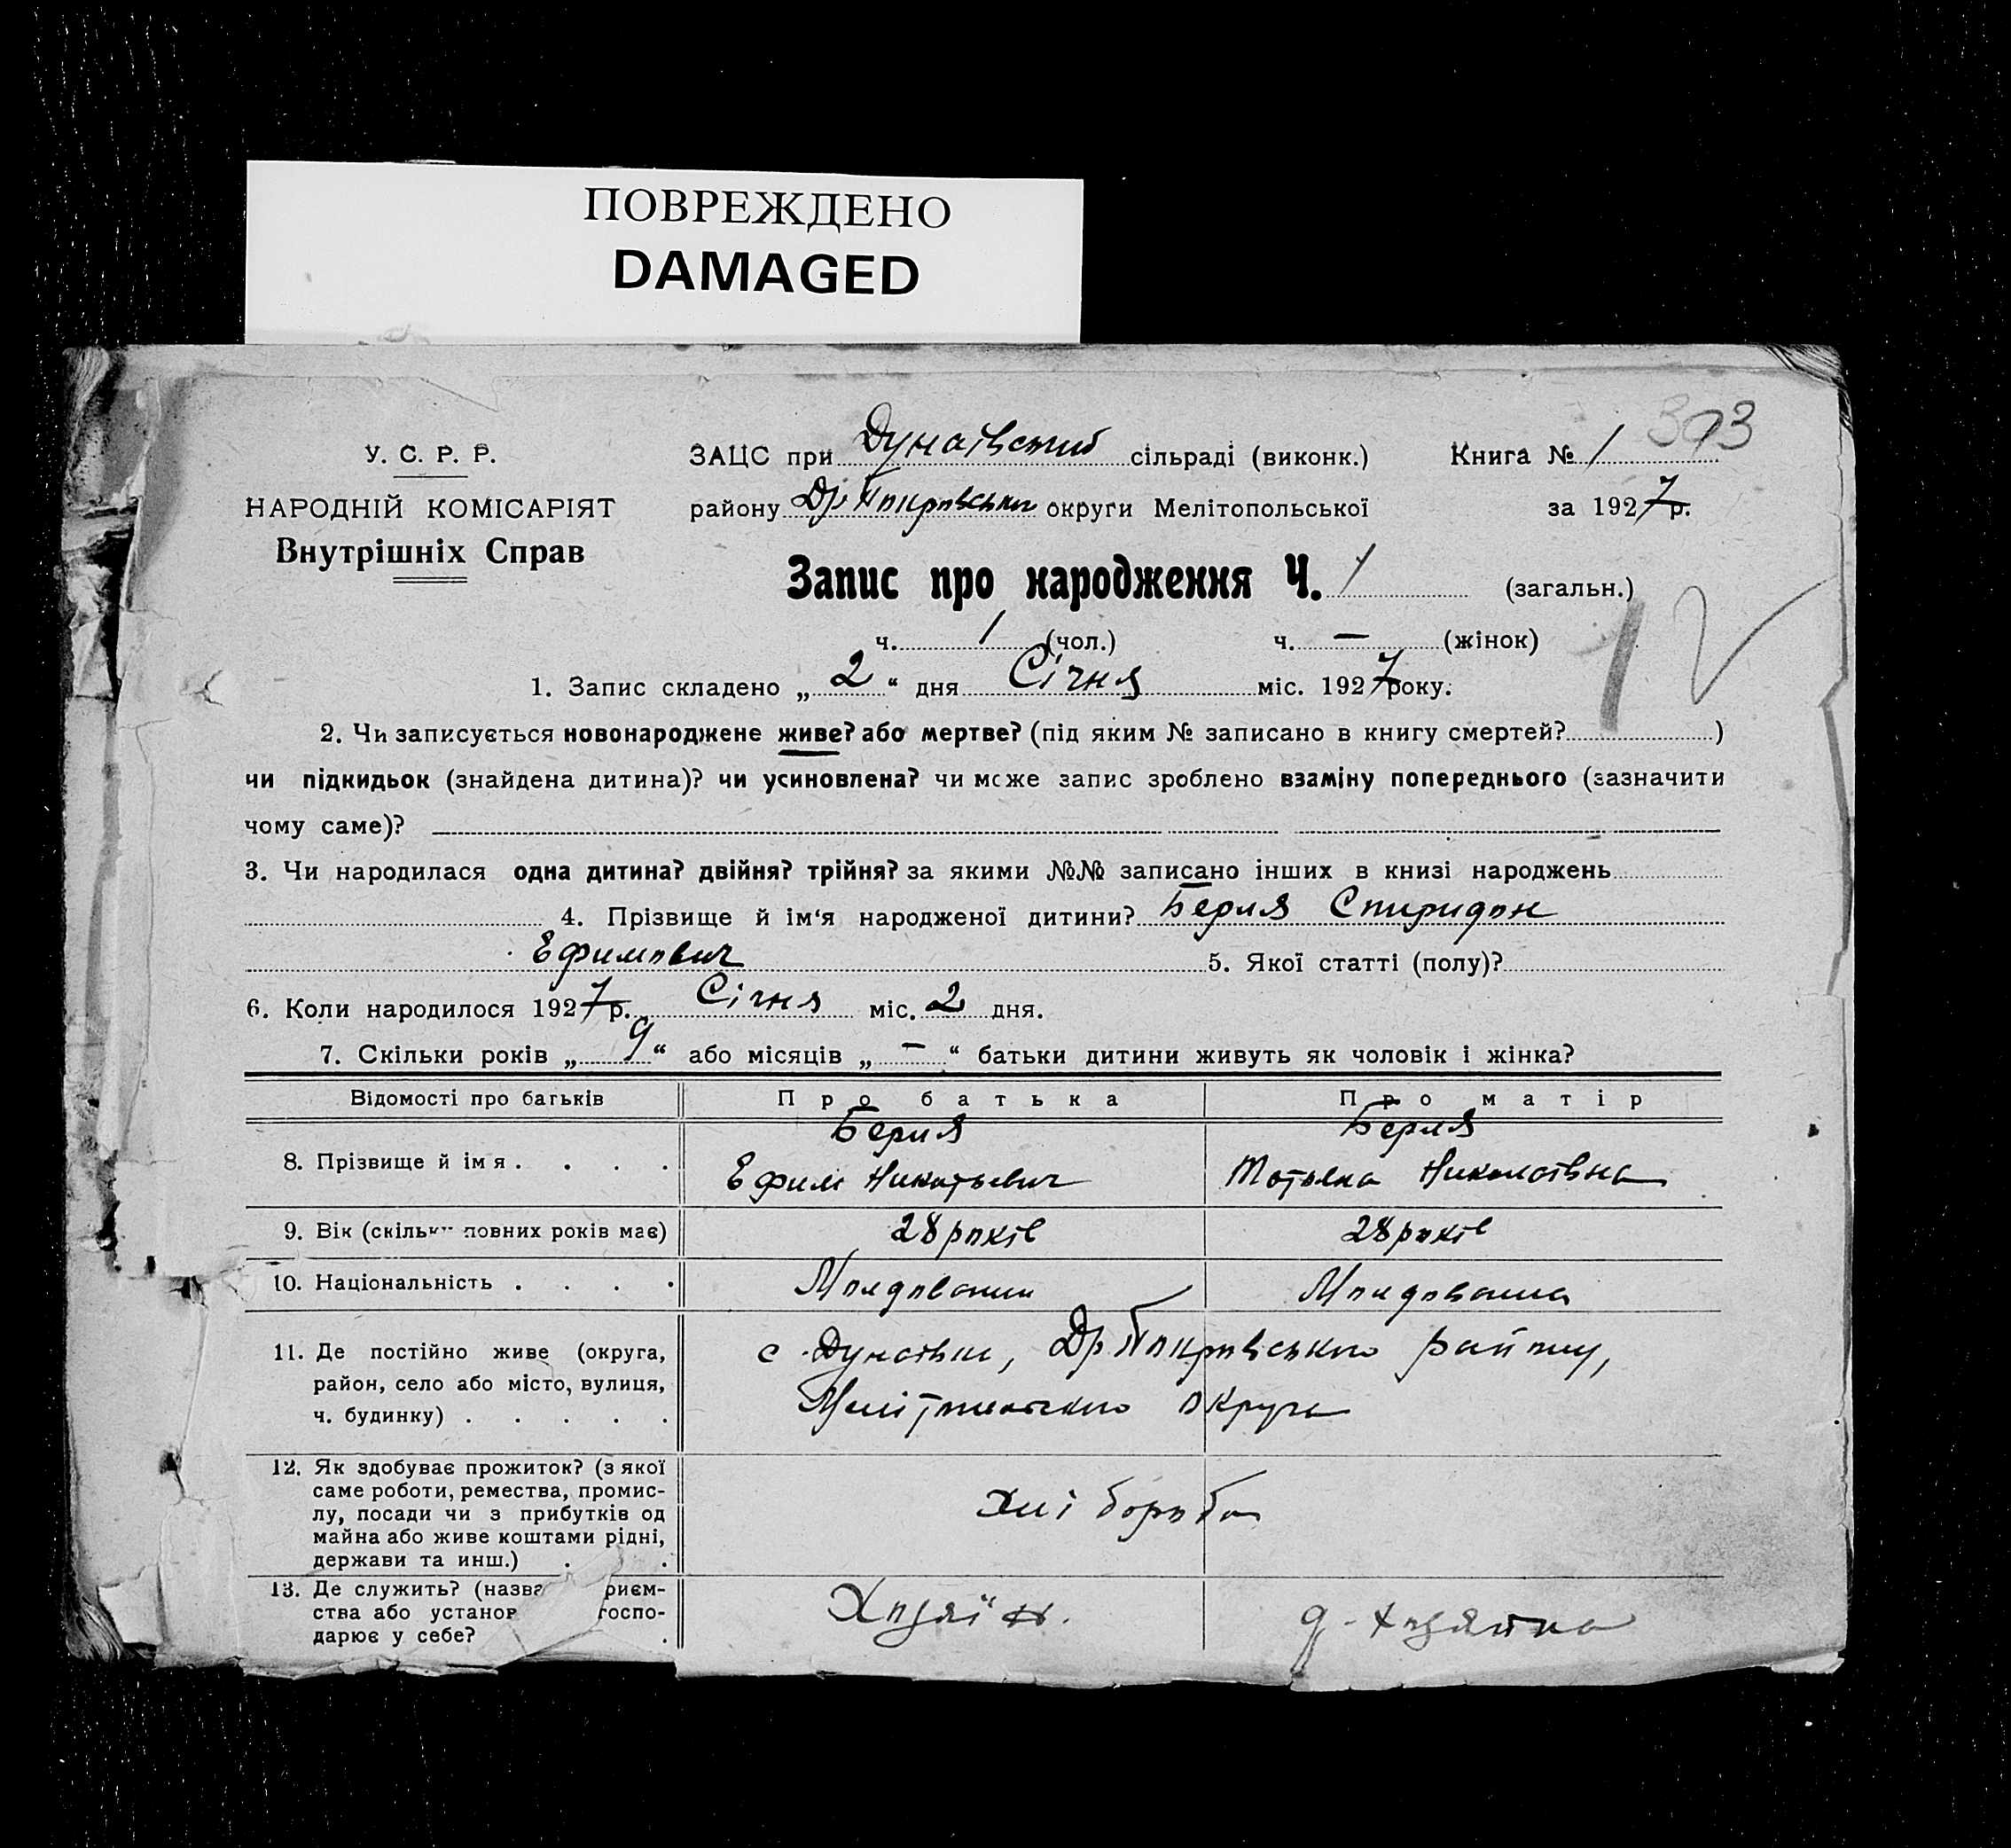 ПОВРЕЖДЕНО
DAMAGED
303
У. С. Р. Р.
НАРОДНІЙ КОМІСАРІЯТ
Внутрішніх Справ
ЗАЦС при Дунаївский сільраді (виконк.) Книга № 1
району Др. Покровського округи Мелітопольської за 1927 р.
Запис про народження Ч. 1 (загальн.)
ч. 1 (чол.) ч. — (жінок)
1. Запис складено „ 2 “ дня Січня міс. 1927 року.
2. Чи записується новонароджене живе? або мертве? (під яким № записано в книгу смертей? )
чи підкидьок (знайдена дитина)? чи усиновлена? чи може запис зроблено взаміну попереднього (зазначити
чому саме)?
3. Чи народилася одна дитина? двійня? трійня? за якими №№ записано інших в книзі народжень
4. Прізвище й ім‘я народженої дитини? Берия Спиридон
Ефимович 5. Якої статті (полу)?
6. Коли народилося 1927 р. Січня міс. 2 дня.
7. Скільки років „ 9 “ або місяців „ — “ батьки дитини живуть як чоловік і жінка?
Відомості про батьків Про батька Про матір
Берия Берия
8. Прізвище й імя . . . . Ефим Никитьевич Татьяна Николаївна
9. Вік (скільки повних років має) 28 років 28 років
10. Національність . . . . Молдованин Молдованка
11. Де постійно живе (округа,
район, село або місто, вулиця,
ч. будинку) . . . . .
с. Дунаївки, Др. Покровського району,
Мелітопольського округа
12. Як здобуває прожиток? (з якої
саме роботи, ремества, промис-
лу, посади чи з прибутків од
майна або живе коштами рідні,
держави та инш.) . .
Хліборьба
13. Де служить? (назва риєм-
ства або установ госпо-
дарює у себе? .
Хозяїн. д-хозяйка